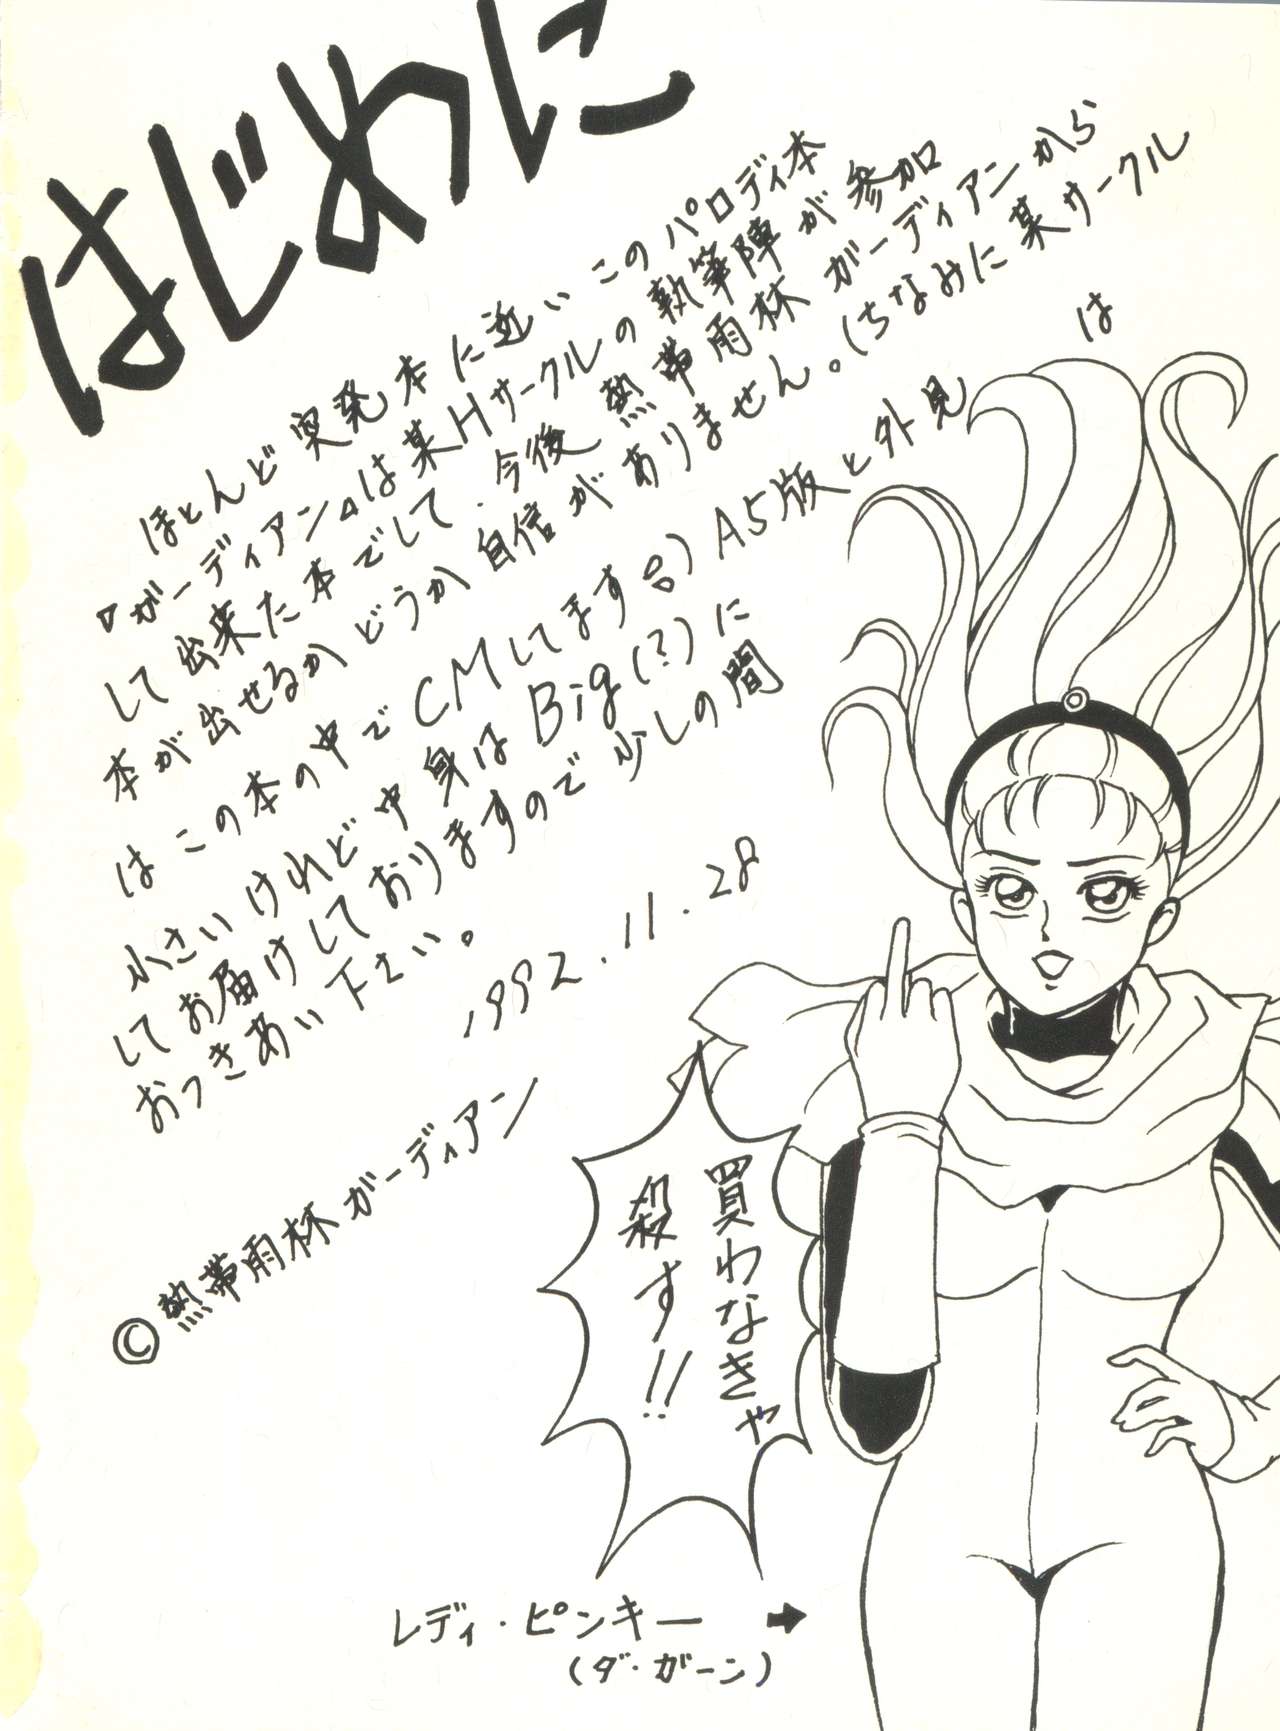 はじめに
ほとんど突発本に近いこのパロディ本
『ガーディアン』は某Hサークルの執筆陣が参加
して出来た本でして、今後熱帯雨林ガーディアンから
本が出せるかどうか自信がありません。(ちなみに某サークル
はこの本の中でCMしてます台) A5版と外見は
小さいけれど中身はBig(?)に
してお届けしておりますので少しの間
おつきあい下さい。
1992.11.28
©熱帯雨林ガーディアン
買わなきゃ
殺す!!
レディ・ピンキー
(ダ・ガーン)